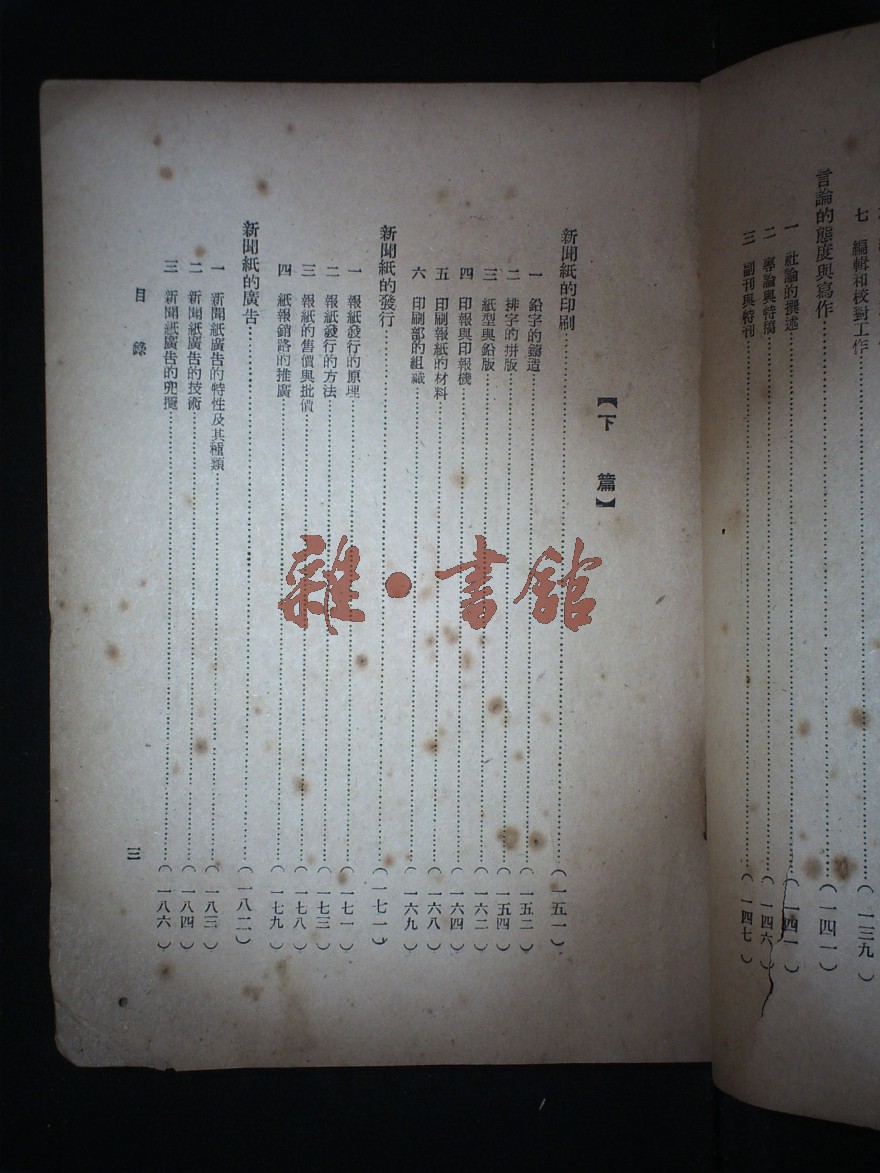 七　編輯和校對工作……（一三九）
言論的態度與寫作……（一四一）
一　社論的撰述……（一四一）
二　專論與特稿……（一四六）
三　副刊與特刊……（一四七）
【下　篇】
新聞紙的印刷……（一五一）
一　鉛字的鑄造……（一五二）
二　排字的拼版……（一五四）
三　紙型與鉛版……（一六二）
四　印報與印報機……（一六四）
五　印刷報紙的材料……（一六八）
六　印刷部的組織……（一六九）
新聞紙的發行……（一七一）
一　報紙發行的原理……（一七一）
二　報紙發行的方法……（一七三）
三　報紙的售價與批價……（一七八）
四　紙報銷路的推廣……（一七九）
新聞紙的廣告……（一八二）
一　新聞紙廣告的特性及其種類……（一八三）
二　新聞紙廣告的技術……（一八四）
三　新聞紙廣告的兜攬……（一八六）
目　錄
三
雜·書館